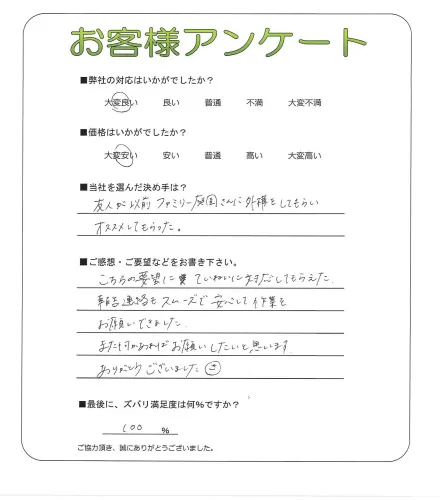 お客様アンケート
■弊社の対応はいかがでしたか？
大変良い 良い 普通 不満 大変不満
■価格はいかがでしたか？
大変安い 安い 普通 高い 大変高い
■当社を選んだ決め手は？
友人が以前ファミリー庭園さんに外構をしてもらい
オススメしてもらった。
■ご感想・ご要望などをお書き下さい。
こちらの要望に ていねいに対応してもらえた
報告連絡もスムーズで安心して作業を
お願いできました
また何かあればお願いしたいと思います
ありがとうございました
■最後に、ズバリ満足度は何%ですか？
100 %
ご協力頂き、誠にありがとうございました。